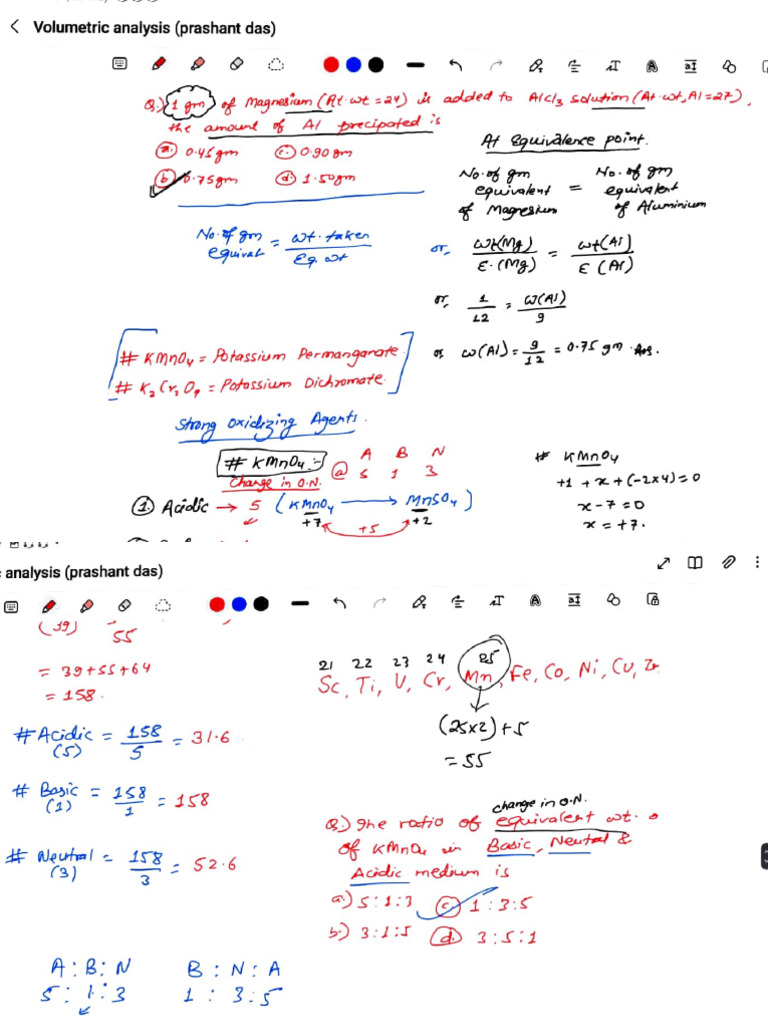 Volumetric analysis (prashant das)
Q.) 1 gm of Magnesium (At. wt = 24) is added to AlCl3 solution (At. wt, Al = 27),
the amount of Al precipated is
a. 0.45gm c. 0.90gm
b. 0.75gm d. 1.50gm
At Equivalence point.
No. of gm equivalent of Magnesium = No. of gm equivalent of Aluminium
No. of gm equivat = wt. taken / Eq. wt
or, wt(Mg) / E. (Mg) = wt(Al) / E (Al)
or, 1 / 12 = W(Al) / 9
or W(Al) = 9 / 12 = 0.75 gm Ans.
# KMnO4 = Potassium Permanganate
# K2Cr2O7 = Potassium Dichromate
Strong Oxidizing Agents.
# KMnO4 :-
Change in O.N.
A B N
@ 5 1 3
① Acidic → 5 (KMnO4 → MnSO4)
+7 +5 +2
# KMnO4
+1 + x + (-2x4) = 0
x - 7 = 0
x = +7.
analysis (prashant das)
(39) 55
= 39+55+64
= 158.
# Acidic (5) = 158 / 5 = 31.6
# Basic (1) = 158 / 1 = 158
# Neutral (3) = 158 / 3 = 52.6
A : B : N B : N : A
5 : 1 : 3 1 : 3 : 5
21 22 23 24 25
Sc, Ti, V, Cr, Mn, Fe, Co, Ni, Cu, Zn
(25x2) + 5
= 55
change in O.N.
Q.) The ratio of equivalent wt.
of KMnO4 in Basic, Neutal &
Acidic medium is
a.) 5:1:3 c. 1:3:5
b.) 3:1:5 d. 3:5:1